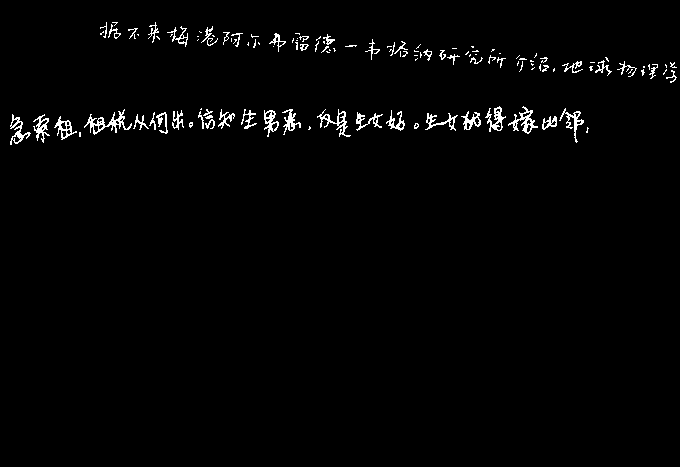 据不来梅港阿尔弗雷德一韦格纳研究所介绍,地球物理学
急索租,租税从何出。信知生男恶,反是生女好。生女犹得嫁比邻,